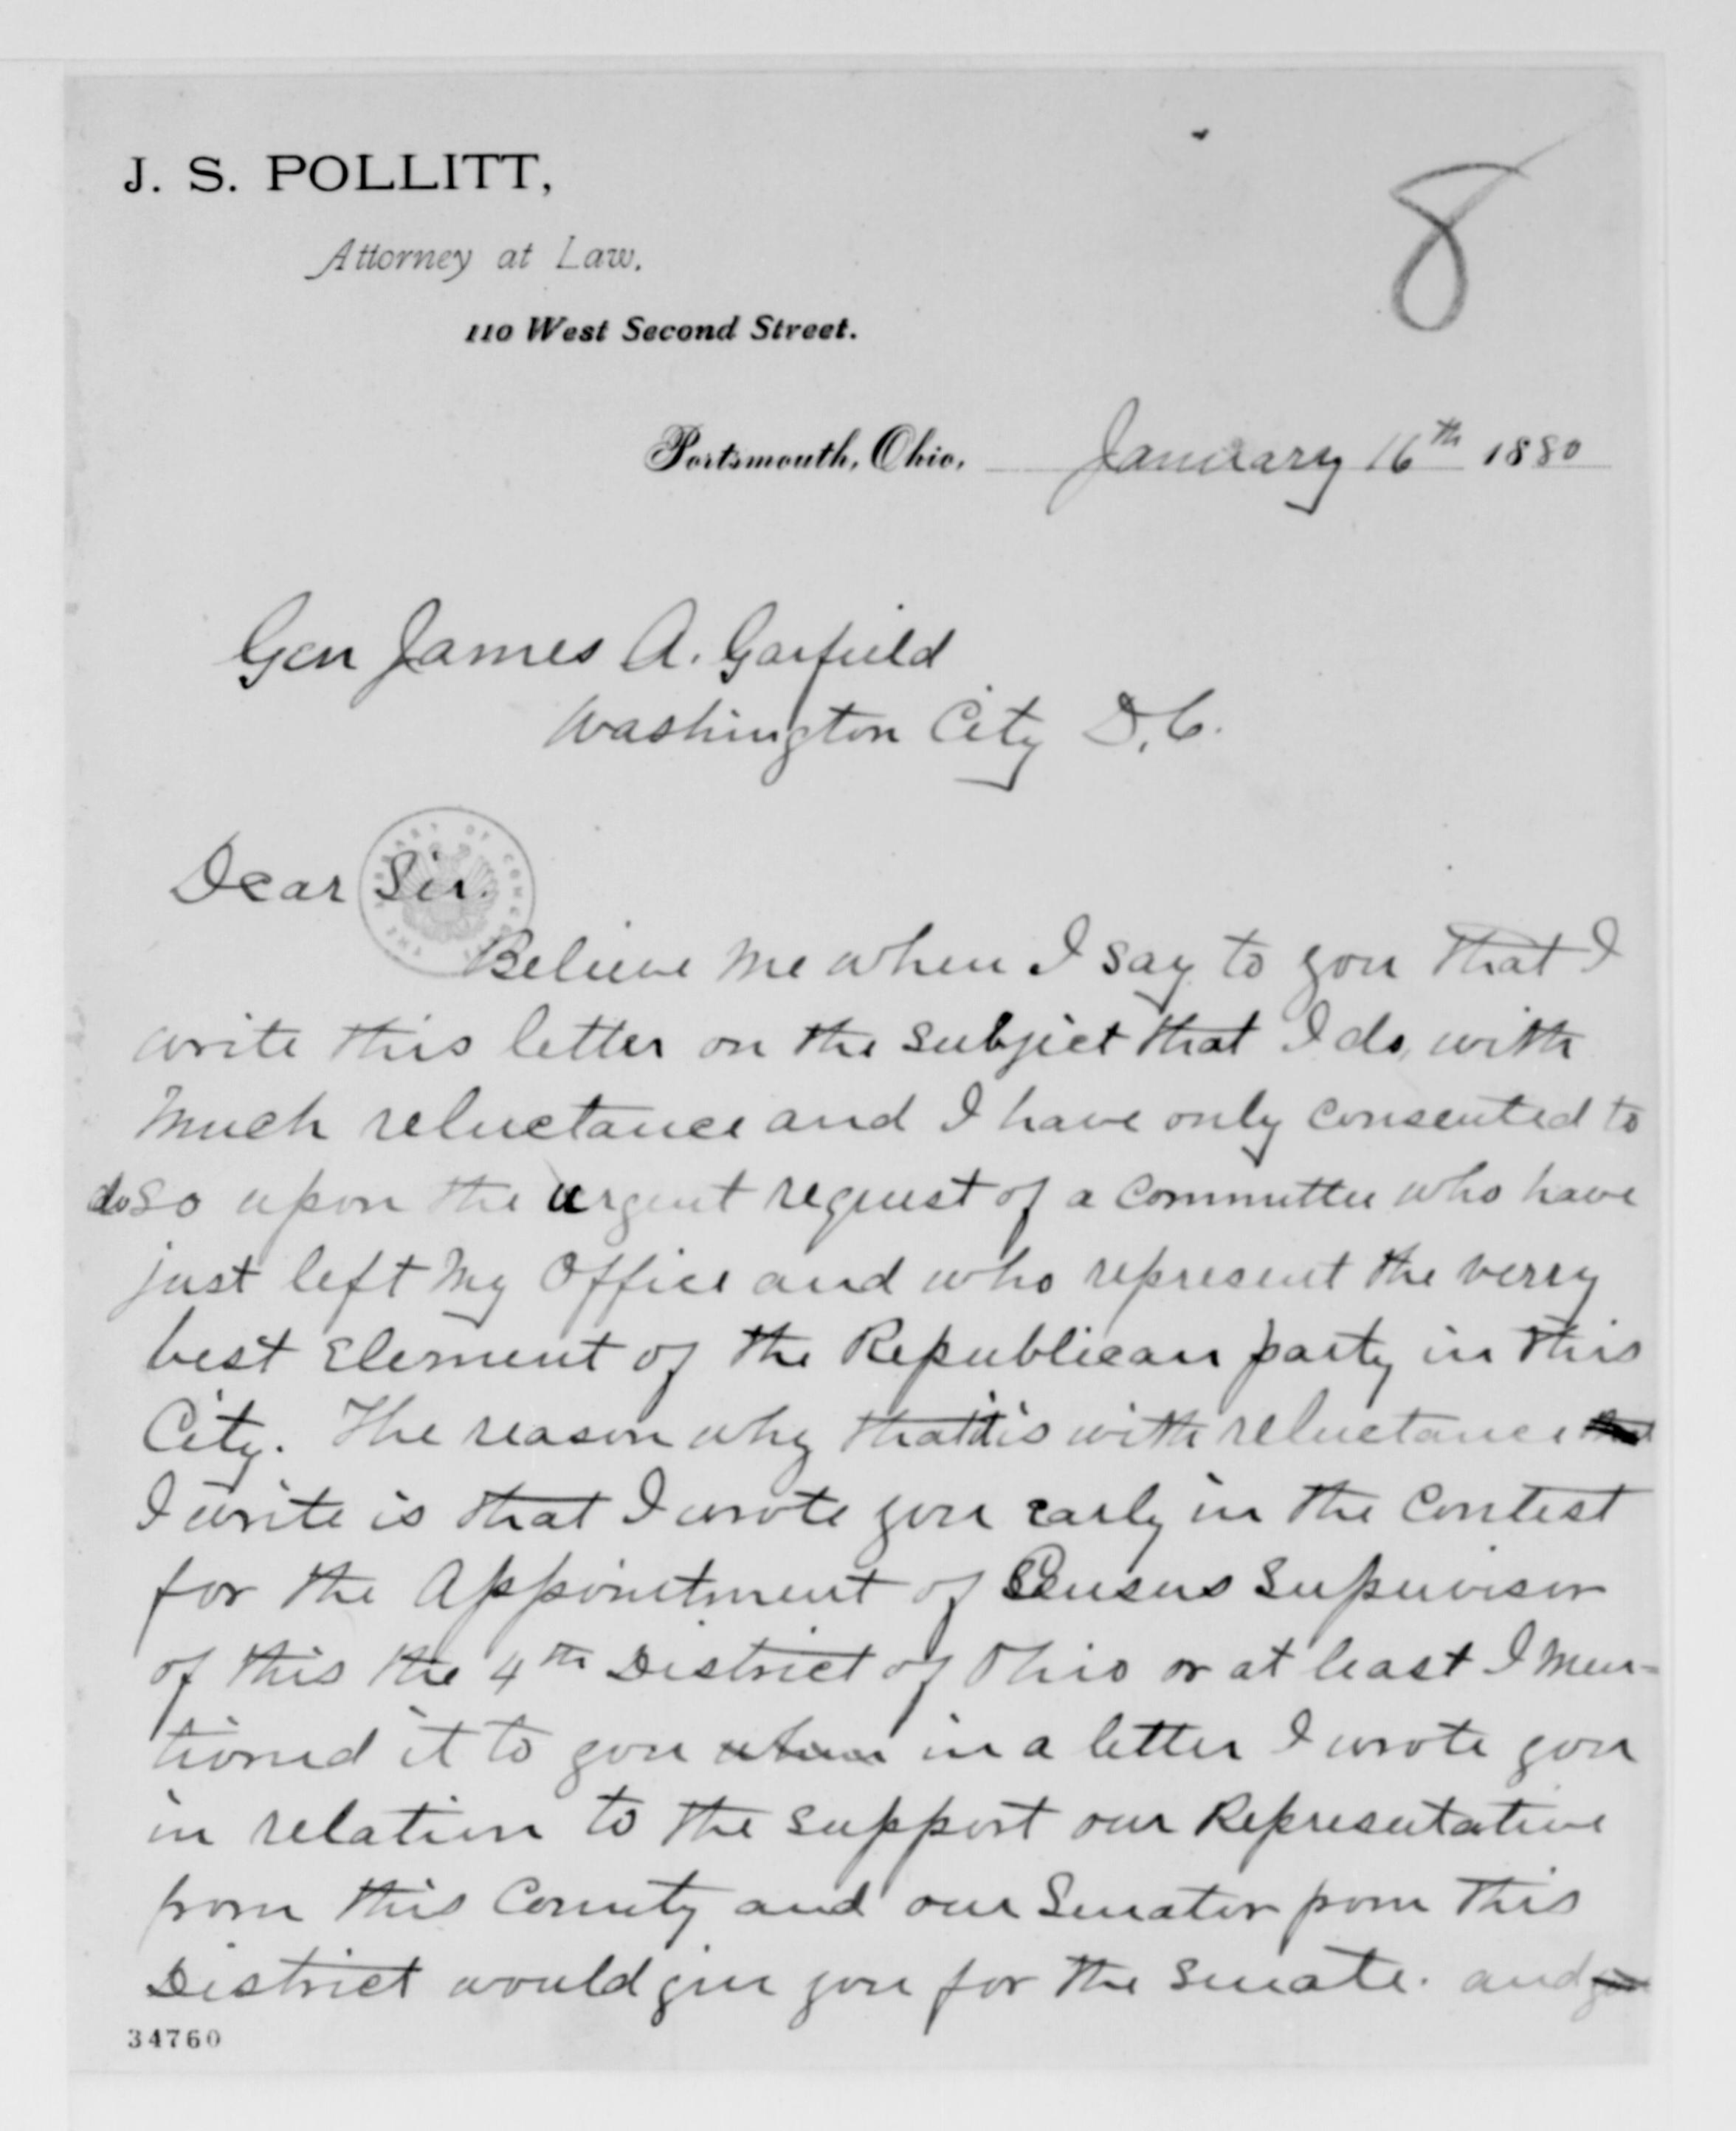 J. S. POLLITT,
8
Attorney at Law.
110 West Second Street.
Portsmouth, Ohio, January 16th 1880
Gen James A. Garfield
Washington City D.C.
Dear Sir.
THE LIBRARY OF CONGRESS
Believe me when I say to you that I
write this letter on the subject that I do, with
much reluctance and I have only consented to
do so upon the urgent request of a committee who have
just left my Office and who represent the verry
best element of the Republican party in this
City. The reason why that it is with reluctance that
I write is that I wrote you early in the contest
for the Appointment of Census Supervisor
of this the 4th District of Ohio or at least I men-
tioned it to you when in a letter I wrote you
in relation to the support our Representative
from this County and our Senator from this
District would give you for the Senate. and
34760